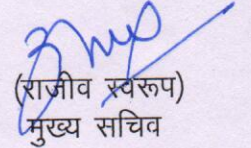 (राजीव स्वरूप)
मुख्य सचिव